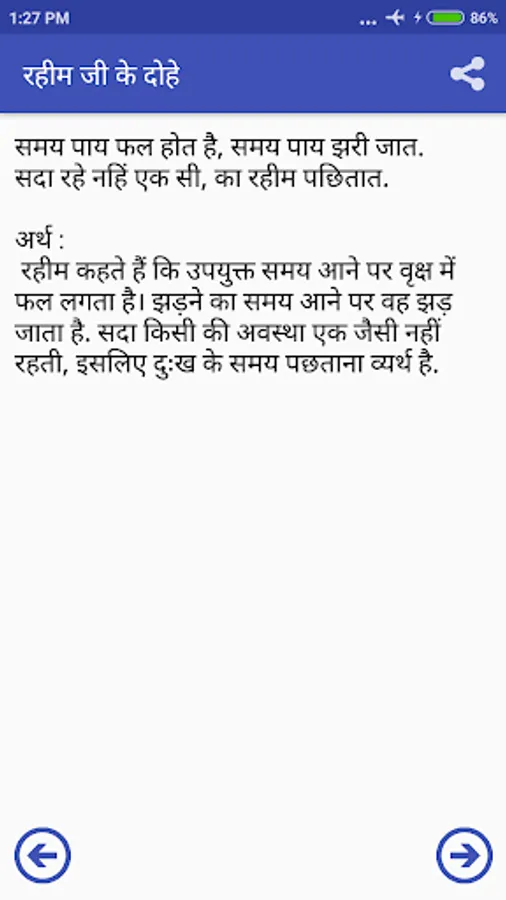 1:27 PM ... 86%
रहीम जी के दोहे
समय पाय फल होत है, समय पाय झरी जात.
सदा रहे नहिं एक सी, का रहीम पछितात.
अर्थ :
रहीम कहते हैं कि उपयुक्त समय आने पर वृक्ष में
फल लगता है। झड़ने का समय आने पर वह झड़
जाता है. सदा किसी की अवस्था एक जैसी नहीं
रहती, इसलिए दुःख के समय पछताना व्यर्थ है.